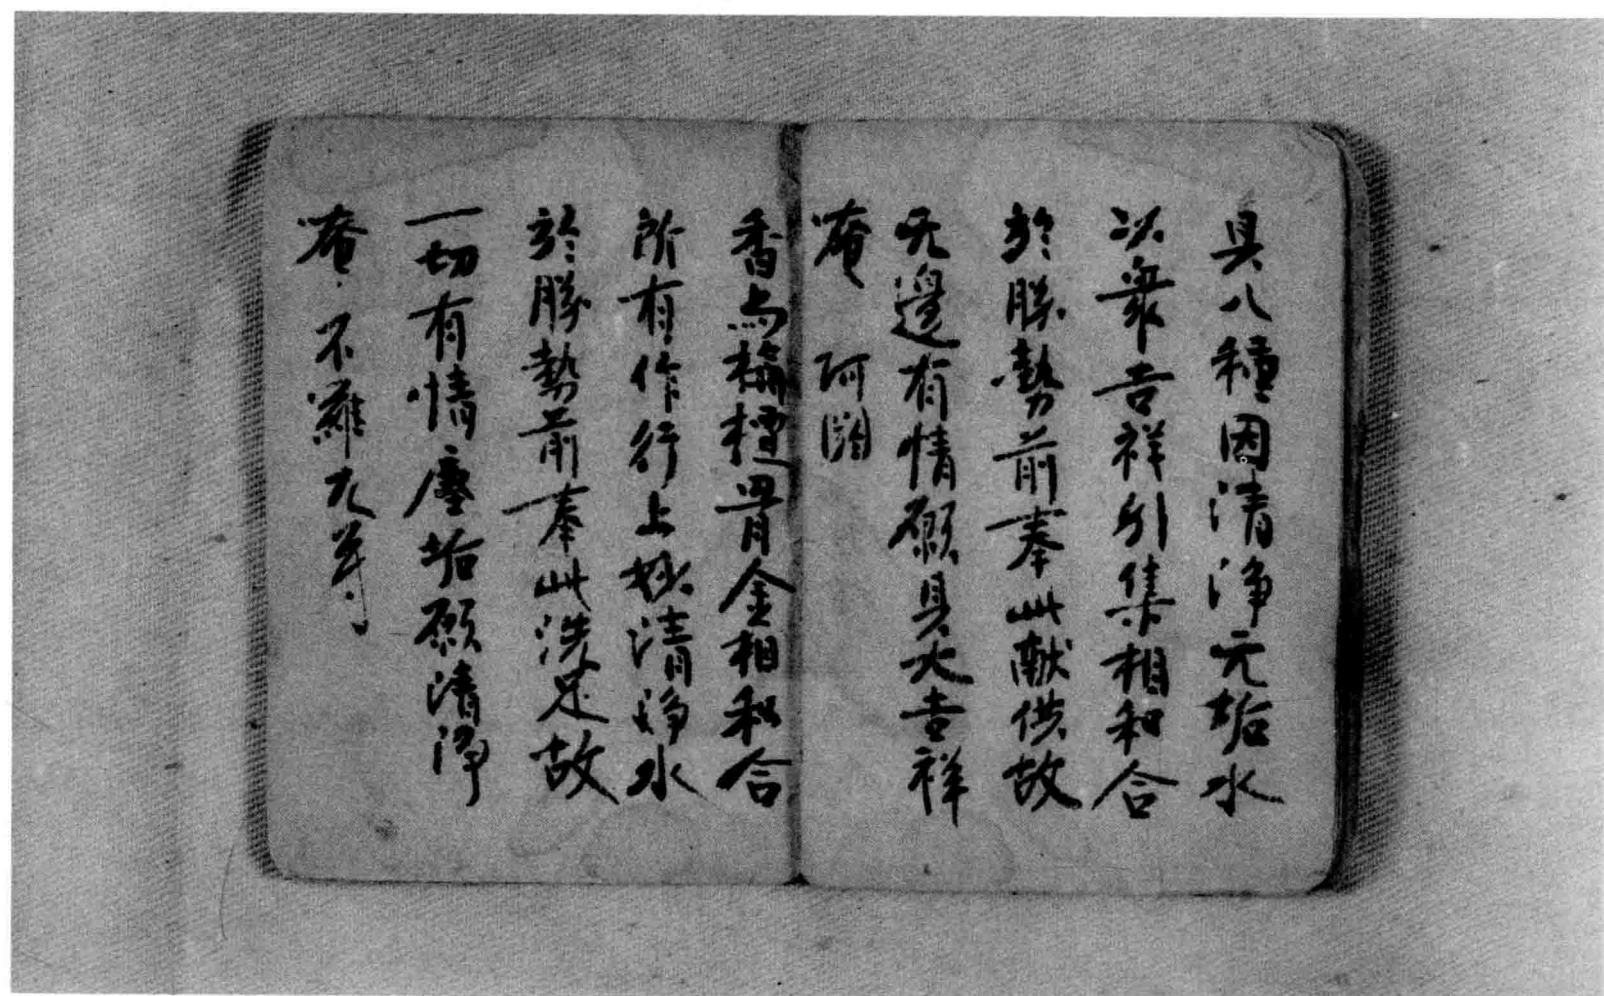 具八種因清淨元垢水
以衆吉祥引集相和合
於勝勢前奉此献供故
无邊有情願具大吉祥
唵 阿
香与檀骨金相和合
所有作行上妙清淨水
於勝勢前奉此洗足故
一切有情塵垢願清淨
唵不羅